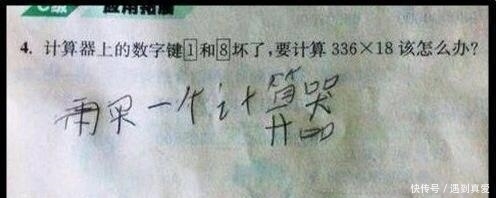 C级 应用拓展
4. 计算器上的数字键1和8坏了,要计算 336×18 该怎么办?
再买一个计算器
快传号 / 遇到真爱